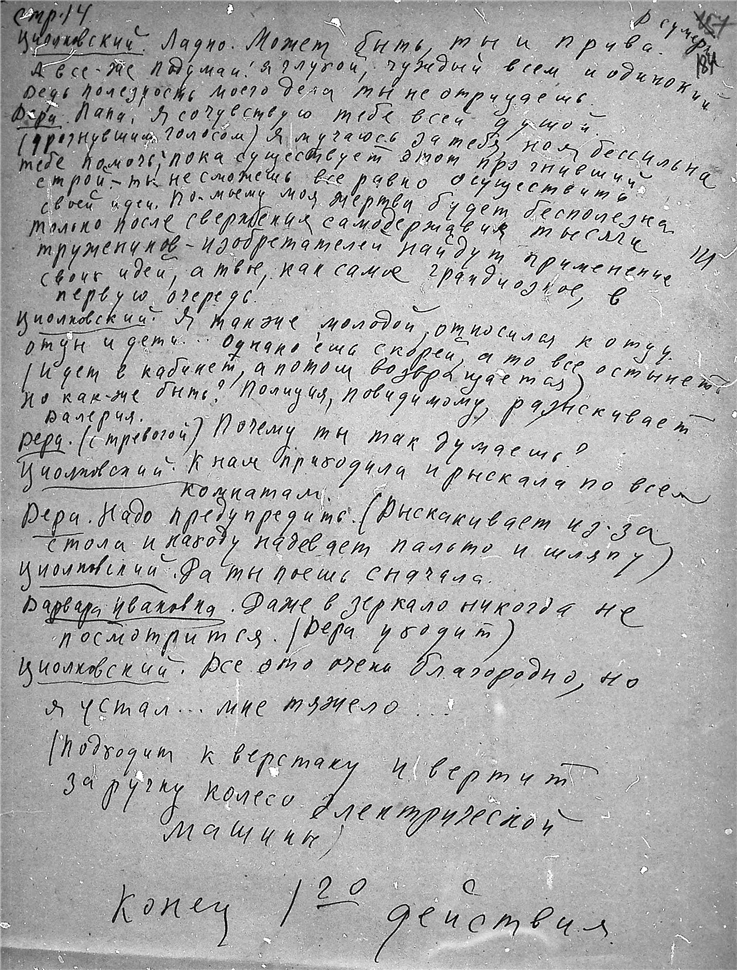 стр. 14
В сумерк
184
Циолковский. Ладно. Может быть, ты и права.
А все-же подумай! Я глухой, чуждый всем и одинокий
Ведь полезность моего дела ты не отрицаешь.
Вера. Папа, я сочувствую тебе всей душой.
(дрогнувшим голосом) Я мучаюсь за тебя, но я бессильна
тебе помочь; пока существует этот прогнивший
строй – ты не сможешь все равно осуществить
своей идеи. По-моему моя жертва будет бесполезна
только после свержения самодержавия тысячи
тружеников-изобретателей найдут применение
своих идей, а твое, как самое грандиозное, в
первую очередь.
Циолковский. Я также молодой относился к отцу.
отцы и дети... Однако ешь скорей, а то все остынет
(Идет в кабинет, а потом возвращается)
Но как-же быть? Полиция, повидимому, разыскивает
Валерия.
Вера. (с тревогой) Почему ты так думаешь?
Циолковский. К нам приходила и рыскала по всем
комнатам.
Вера. Надо предупредить. (Выскакивает из-за
стола и находу надевает пальто и шляпу)
Циолковский. Да ты поешь сначала.
Варвара Ивановна. Даже в зеркало никогда не
посмотрится. (Вера уходит)
Циолковский. Все это очень благородно, но
я устал... мне тяжело...
(Подходит к верстаку и вертит
за ручку колесо электрической
машины)
Конец 1го действия